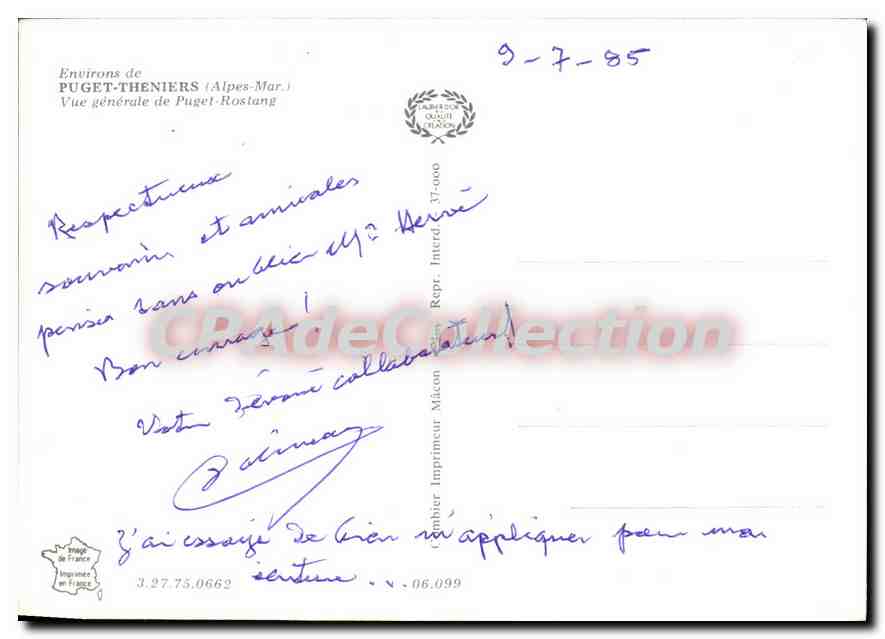 9-7-85
Environs de
PUGET-THENIERS (Alpes-Mar.)
Vue générale de Puget-Rostang
LAURIER D'OR
DE LA
QUALITÉ
DE LA
CRÉATION
Respectueux
souvenirs et amicales
pensées sans oublier Mr Hervé
Bon courage !
Votre dévoué collaborateur !
J'ai essayé de bien m'appliquer pour mon
écriture...
Combier Imprimeur Mâcon Repr. Interd. 37-000
CPAdeCollection
Image
de France
Imprimée
en France
3.27.75.0662
06.099